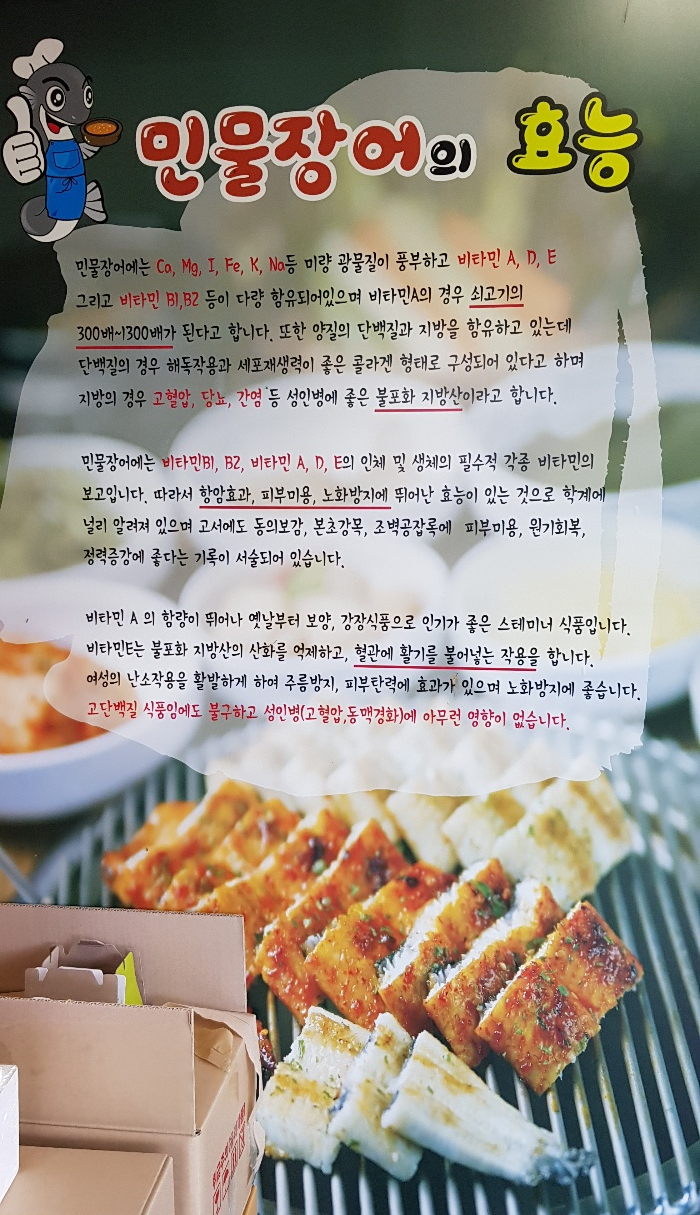 민물장어의 효능
민물장어에는 Ca, Mg, I, Fe, K, Na등 미량 광물질이 풍부하고 비타민 A, D, E
그리고 비타민 B1,B2 등이 다량 함유되어있으며 비타민A의 경우 쇠고기의
300배~1300배가 된다고 합니다. 또한 양질의 단백질과 지방을 함유하고 있는데
단백질의 경우 해독작용과 세포재생력이 좋은 콜라겐 형태로 구성되어 있다고 하며
지방의 경우 고혈압, 당뇨, 간염 등 성인병에 좋은 불포화 지방산이라고 합니다.
민물장어에는 비타민B1, B2, 비타민 A, D, E의 인체 및 생체의 필수적 각종 비타민의
보고입니다. 따라서 항암효과, 피부미용, 노화방지에 뛰어난 효능이 있는 것으로 학계에
널리 알려져 있으며 고서에도 동의보감, 본초강목, 조벽공잡록에 피부미용, 원기회복,
정력증강에 좋다는 기록이 서술되어 있습니다.
비타민 A 의 함량이 뛰어나 옛날부터 보양, 강장식품으로 인기가 좋은 스테미너 식품입니다.
비타민E는 불포화 지방산의 산화를 억제하고, 혈관에 활기를 불어넣는 작용을 합니다.
여성의 난소작용을 활발하게 하여 주름방지, 피부탄력에 효과가 있으며 노화방지에 좋습니다.
고단백질 식품임에도 불구하고 성인병(고혈압,동맥경화)에 아무런 영향이 없습니다.